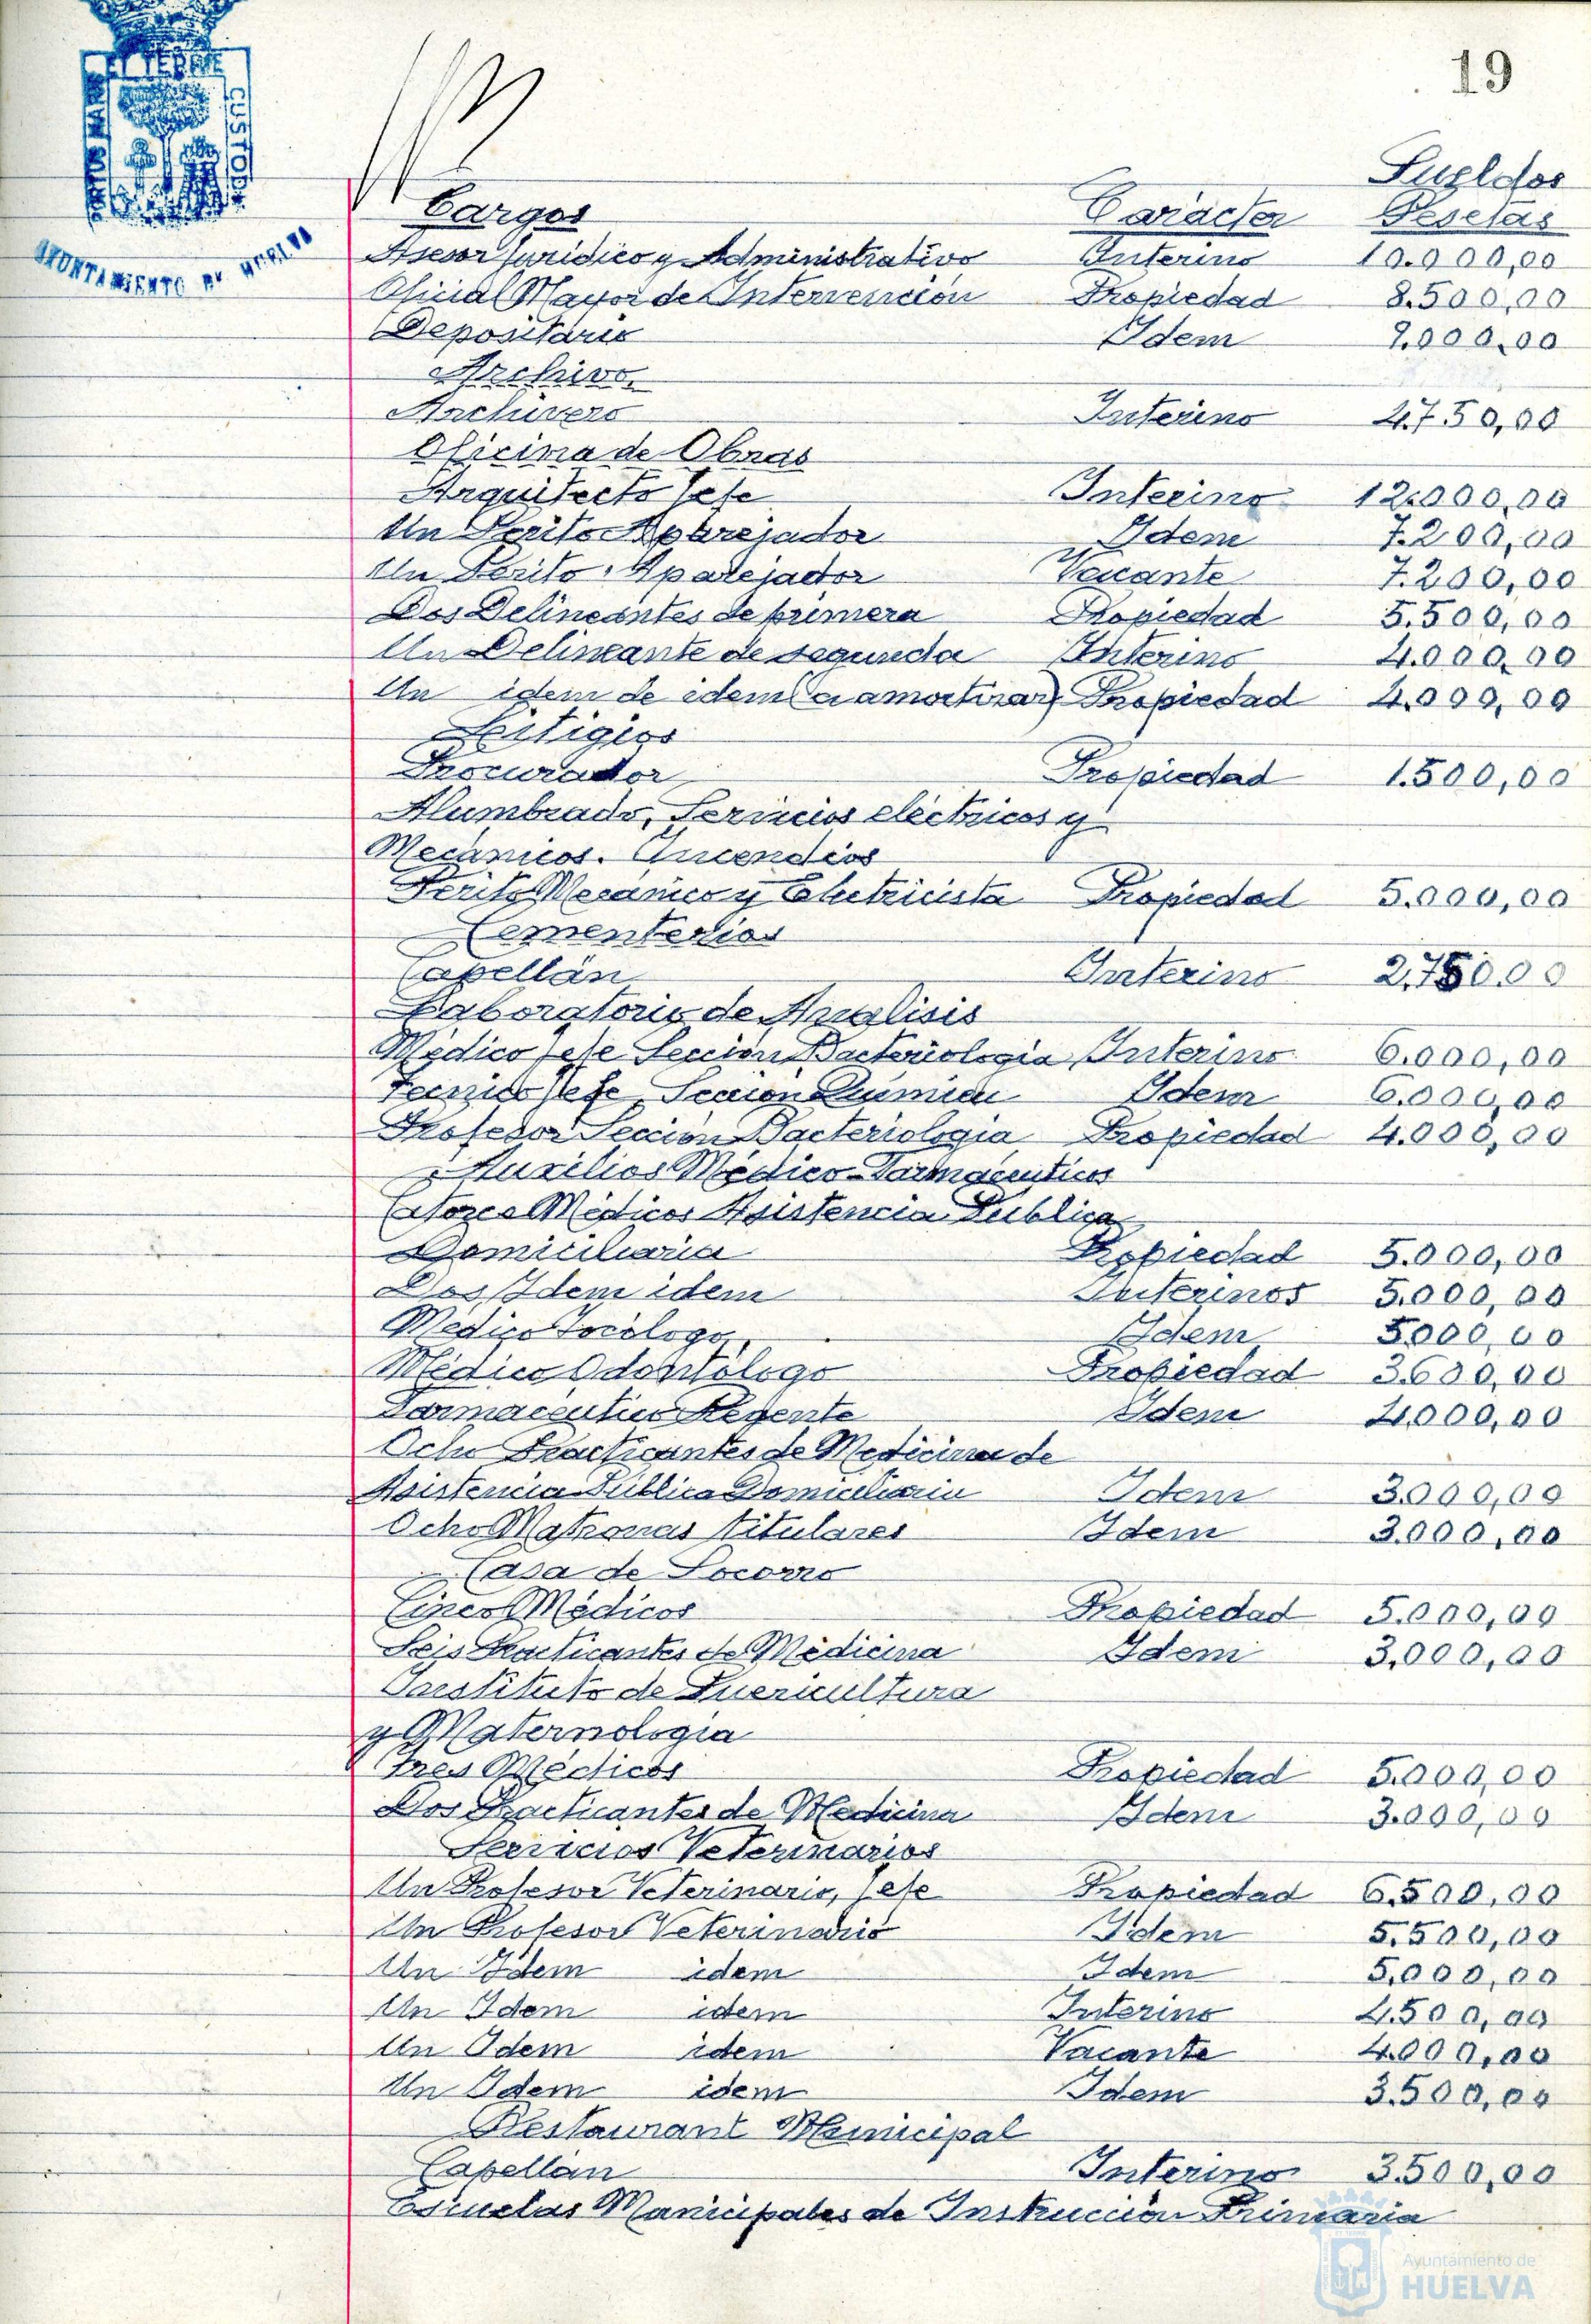 19
Sueldos
Cargos Carácter Pesetas
Asesor Jurídico y Administrativo Interino 10.000,00
Oficial Mayor de Intervención Propiedad 8.500,00
Depositario Idem 7.000,00
Archivo
Archivero Interino 4.750,00
Oficina de Obras
Arquitecto Jefe Interino 12.000,00
Un Perito Aparejador Idem 7.200,00
Un Perito Aparejador Vacante 7.200,00
Dos Delineantes de primera Propiedad 5.500,00
Un Delineante de segunda Interino 4.000,00
Un idem de idem (a amortizar) Propiedad 4.000,00
Litigios
Procurador Propiedad 1.500,00
Alumbrado, Servicios eléctricos y
Mecánicos. Incendios
Perito Mecánico y Electricista Propiedad 5.000,00
Cementerios
Capellán Interino 2.750.00
Laboratorio de Analisis
Médico Jefe Sección Bacteriología Interino 6.000,00
Tecnico Jefe Sección Química Idem 6.000,00
Profesor Sección Bacteriología Propiedad 4.000,00
Auxilios Médico-Farmaceuticos
Catorce Médicos Asistencia Publica
Domiciliaria Propiedad 5.000,00
Dos Idem idem Interinos 5.000,00
Médico Tocólogo Idem 5000,00
Médico Odontólogo Propiedad 3.600,00
Farmaceutico Regente Idem 4.000,00
Ocho Practicantes de Medicina de
Asistencia Pública Domiciliaria Idem 3.000,00
Ocho Matronas titulares Idem 3.000,00
Casa de Socorro
Cinco Médicos Propiedad 5.000,00
Seis Practicantes de Medicina Idem 3,000,00
Instituto de Puericultura
y Maternología
Tres Médicos Propiedad 5.000,00
Dos Practicantes de Medicina Idem 3.000,00
Servicios Veterinarios
Un Profesor Veterinario, Jefe Propiedad 6.500,00
Un Profesor Veterinario Idem 5.500,00
Un Idem idem Idem 5,000,00
Un Idem idem Interino 4.500,00
Un Idem idem Vacante 4.000,00
Un Idem idem Idem 3.500,00
Restaurant Municipal
Capellán Interino 3.500,00
Escuelas Municipales de Instrucción Primaria
CUSTODI
AYUNTAMIENTO DE HUELVA
Ayuntamiento de
HUELVA